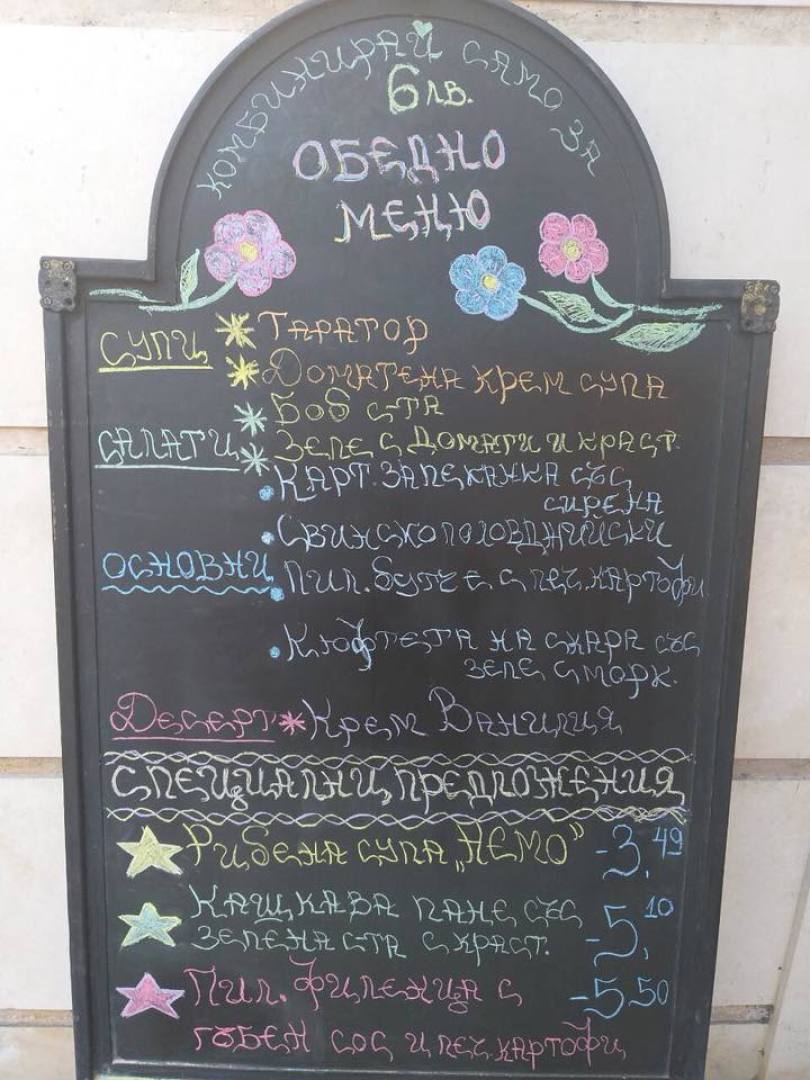 КОМБИНИРАЙ САМО ЗА
6 лв.
ОБЕДНО
МЕНЮ
СУПИ * ТАРАТОР
* ДОМАТЕНА КРЕМ СУПА
САЛАТИ * БОБ С-ТА
* ЗЕЛЕ С ДОМАТИ И КРАСТ.
ОСНОВНИ • КАРТ. ЗАПЕКАНКА СЪС
СИРЕНА
• СВИНСКО ПОЛОВДИЙСКИ
• ПИЛ. БУТЧЕ С ПЕЧ. КАРТОФИ
• КЮФТЕТА НА СКАРА СЪС
ЗЕЛЕ С МОРК.
ДЕСЕРТ * КРЕМ ВАНИЛИЯ
СПЕЦИАЛНИ ПРЕДЛОЖЕНИЯ
РИБЕНА СУПА „НЕМО” -3.49
КАШКАВА ПАНЕ СЪС
ЗЕЛЕНА С-ТА С КРАСТ. -5.10
ПИЛ. ФИЛЕНЦА С -5.50
ГЪБЕН СОС И ПЕЧ. КАРТОФИ